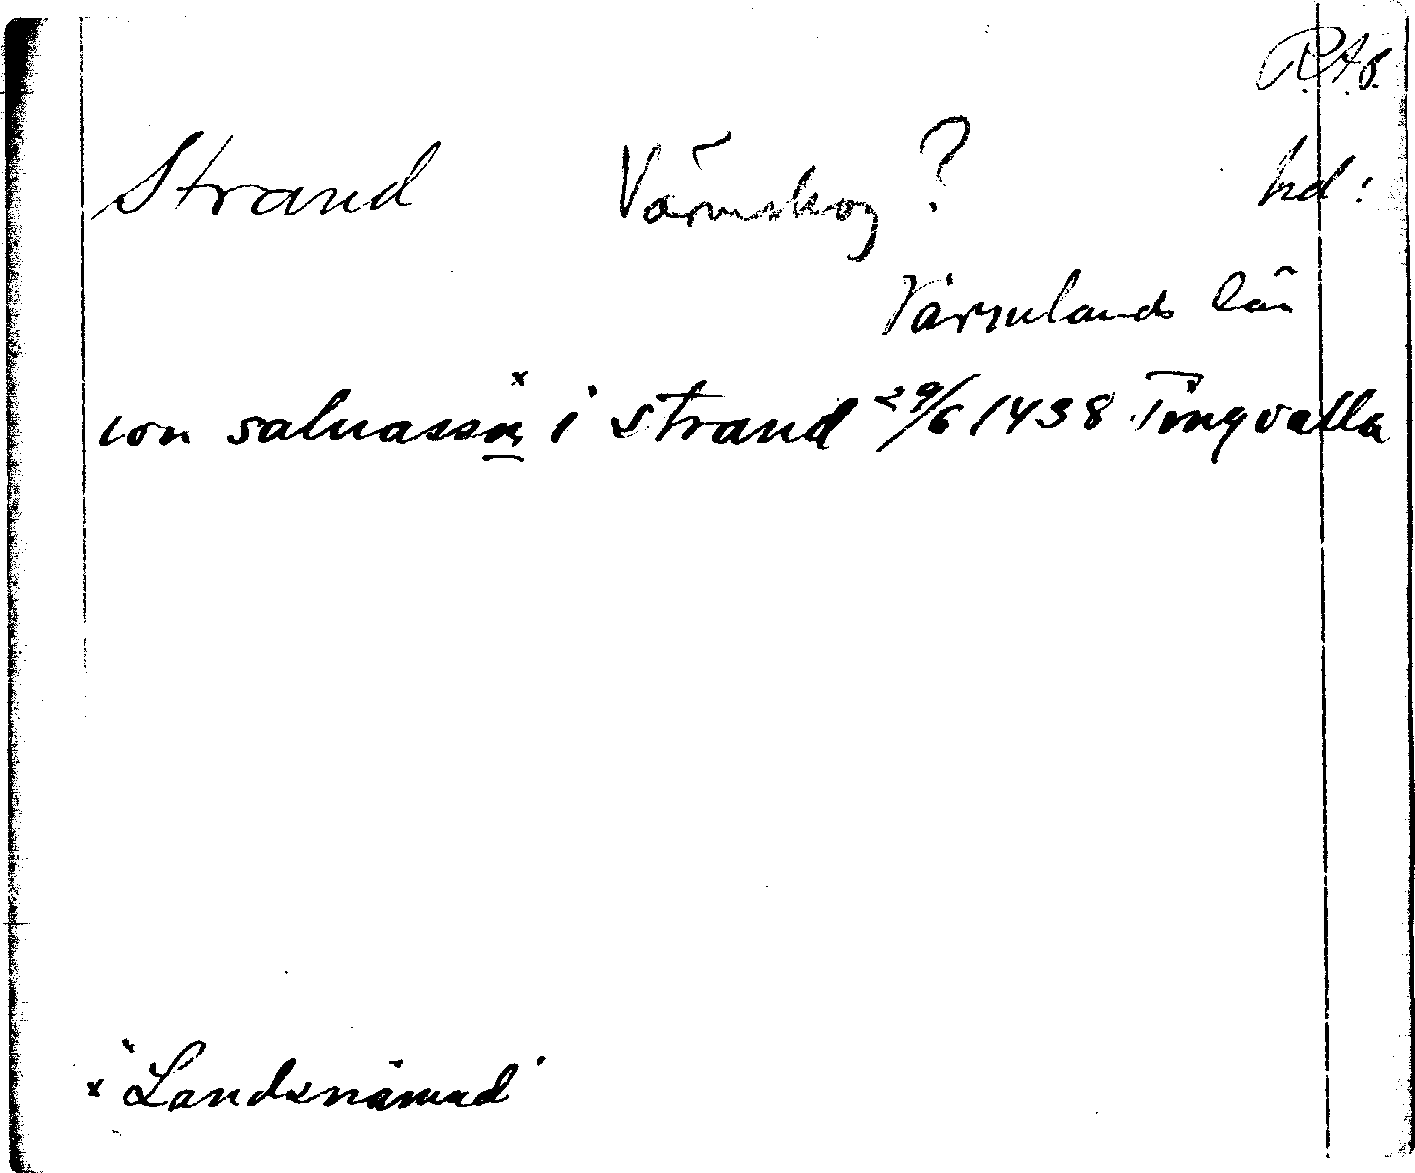 R.A.
Strand Värmskog ? hd:
Värmlands län
ion saluassn x i strand 29/6 1438 Tingvalla
x "Landsnämnd"